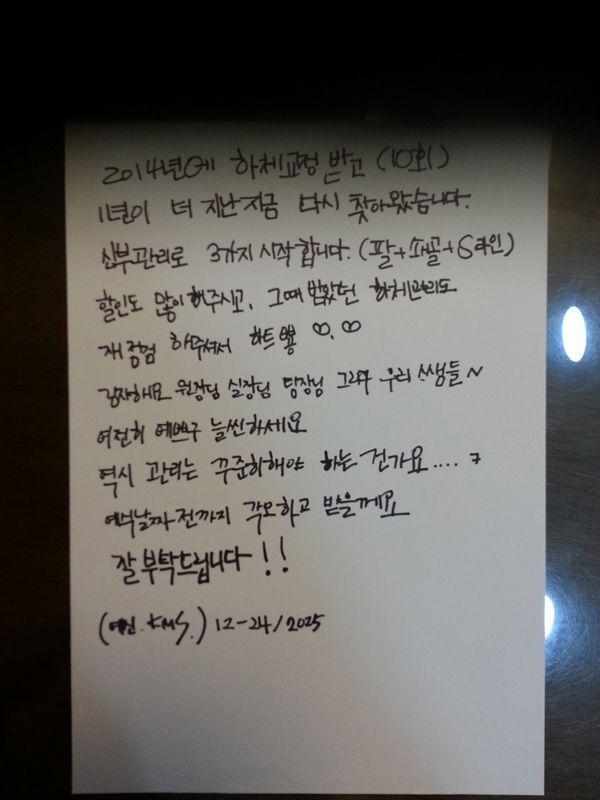 2014년에 하체교정 받고 (10회)
1년이 더 지난지금 다시 찾아왔습니다.
신부관리로 3가지 시작합니다. (팔+쇄골+S라인)
할인도 많이 해주시고, 그때 받았던 하체관리도
재점검 해주셔서 하트뿅 ♡.♡
감사해요 원장님 실장님 팀장님 그리구 우리 쌤들~
여전히 예쁘구 늘씬하세요
역시 관리는 꾸준히해야 하는 건가요....ㅋ
예식날짜전까지 각오하고 받을께요
잘 부탁드립니다!!
(KMS.) 12-24/2025